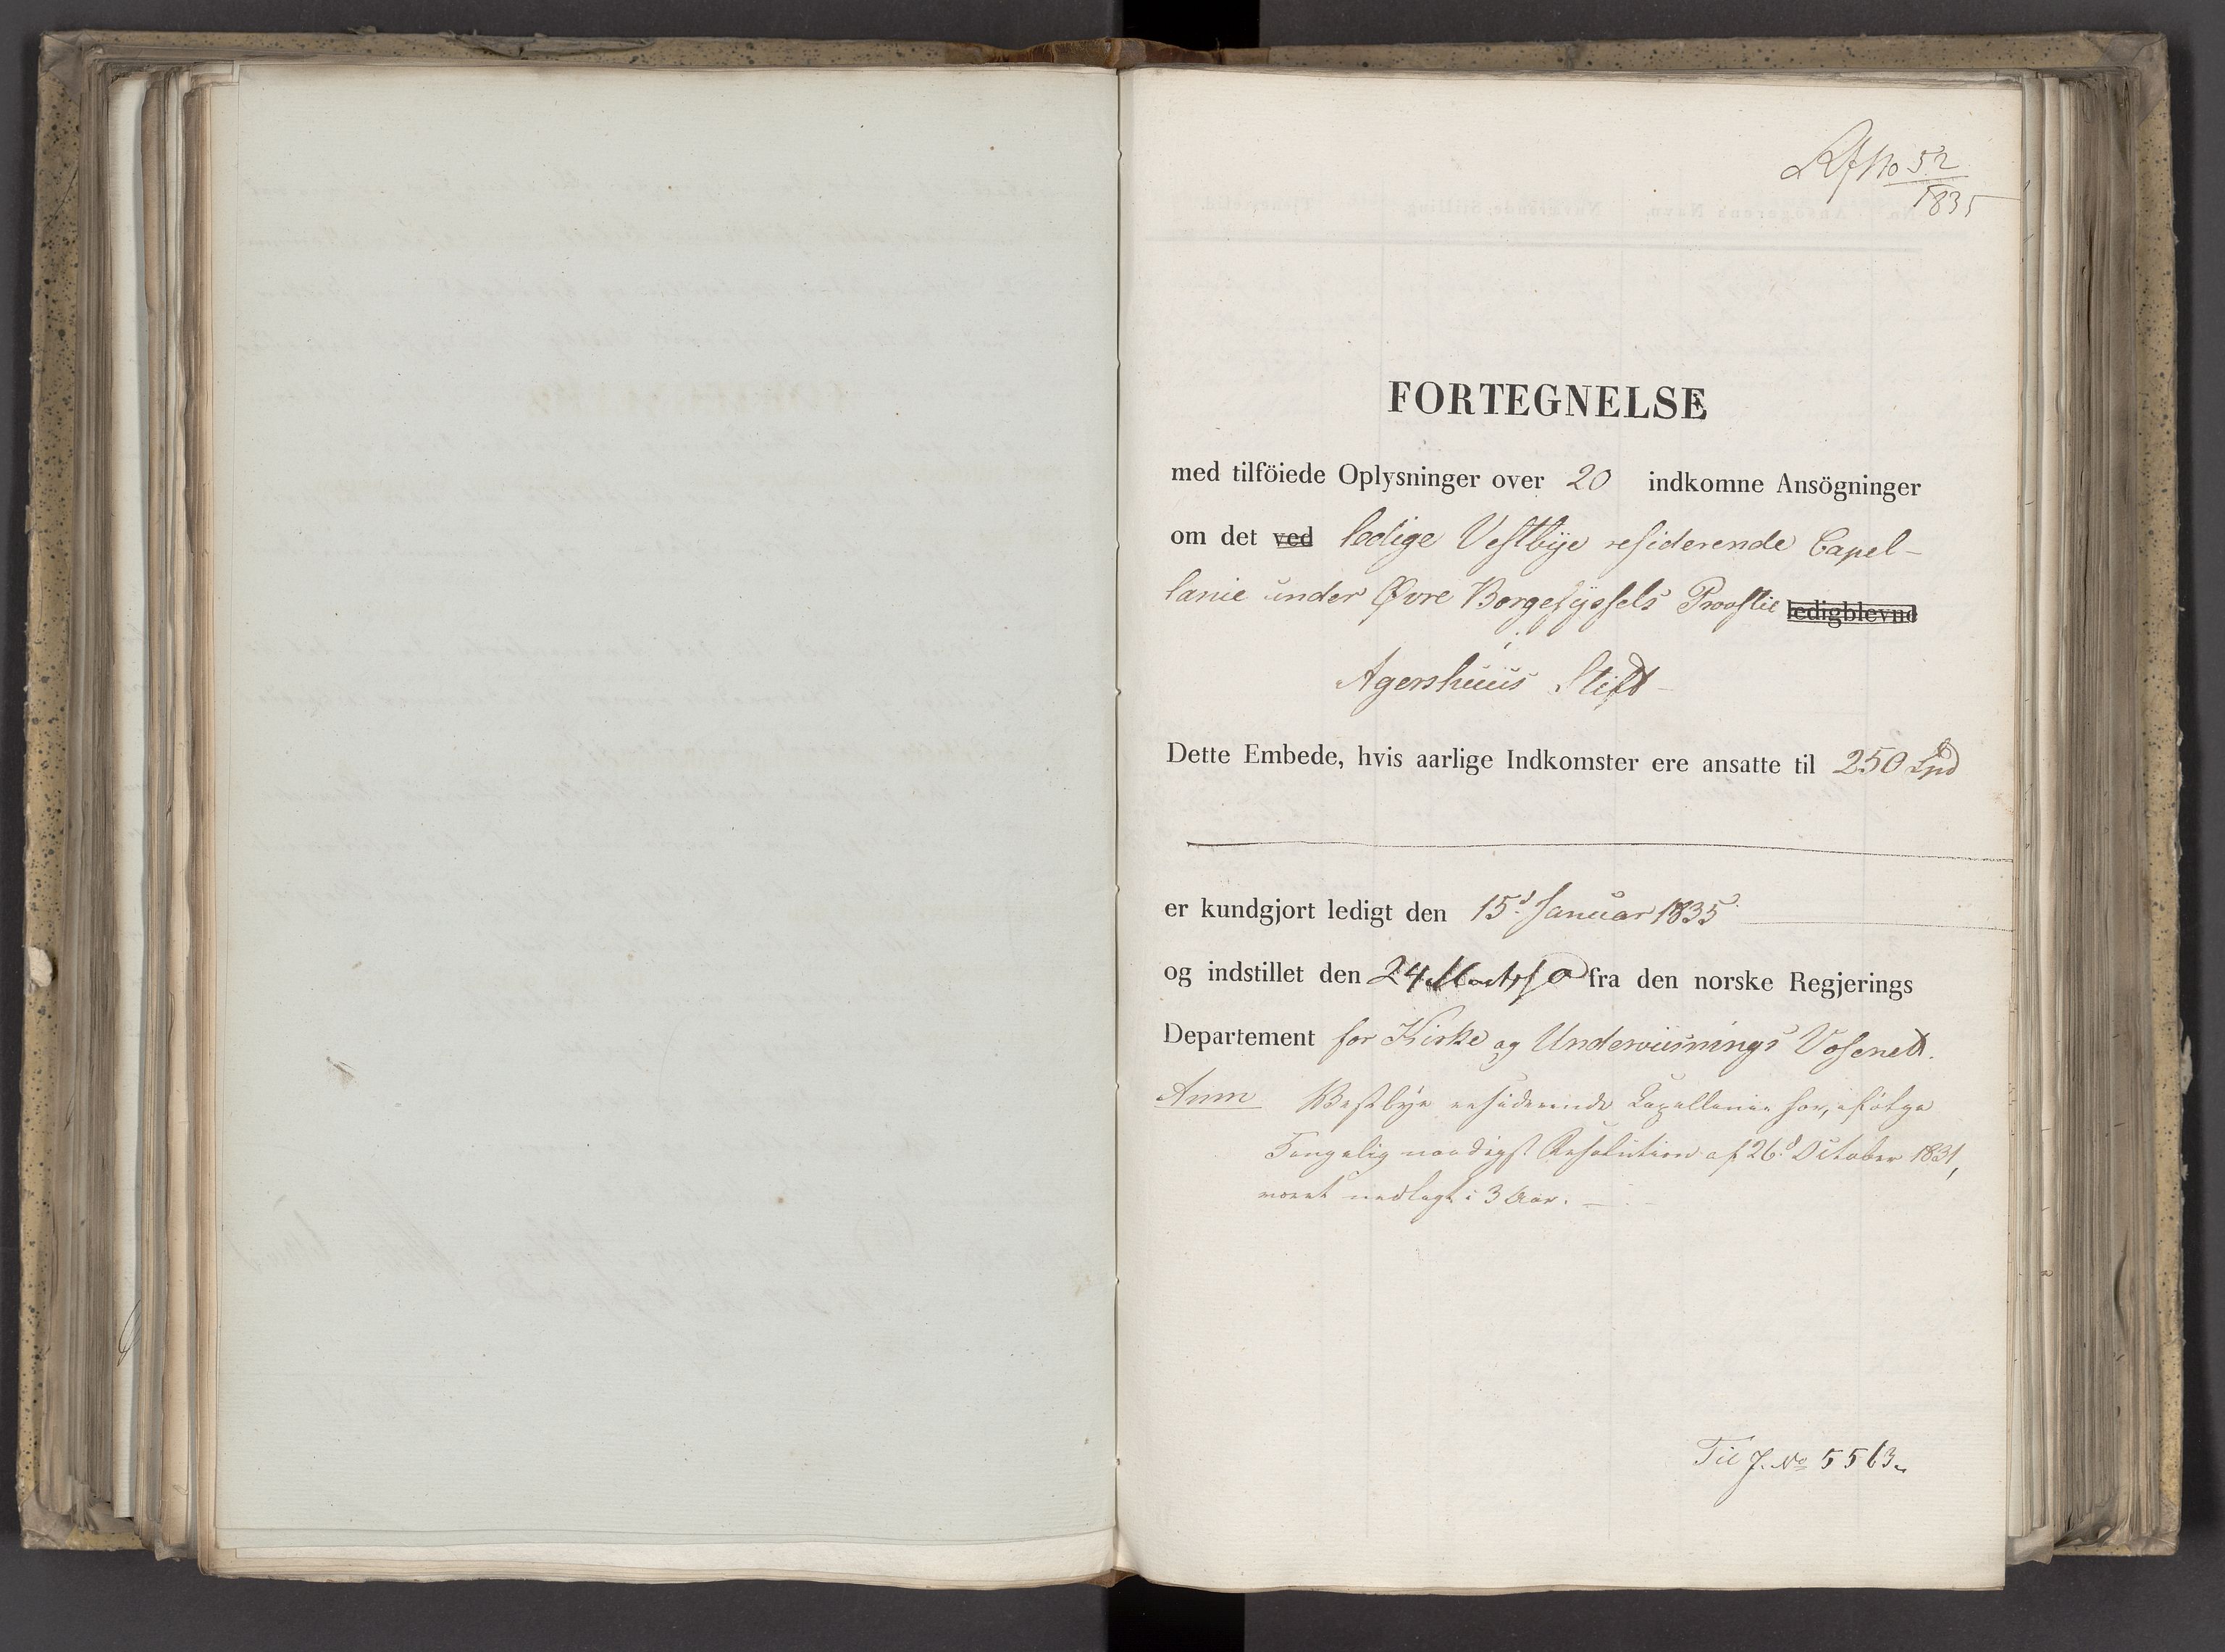 No 52
1835
FORTEGNELSE
med tilföiede Oplysninger over 20 indkomne Ansögninger
om det ved ledige Vestbye residerende Capel-
lanie under Øvre Borgesyssels Provstie ledigblevne
i
Agershuus Stift
Dette Embede, hvis aarlige Indkomster ere ansatte til 250 Spd
er kundgjort ledigt den 15d Januar 1835
og indstillet den 24 Marts fra den norske Regjerings
Departement for Kirke og Underviisnings Væsenet.
Anm Vestbye residerende Capellanie har, ifölge
naadigst Resolution af 26d October 1831,
været nedlagt i 3 Aar.
Til J. No 5563